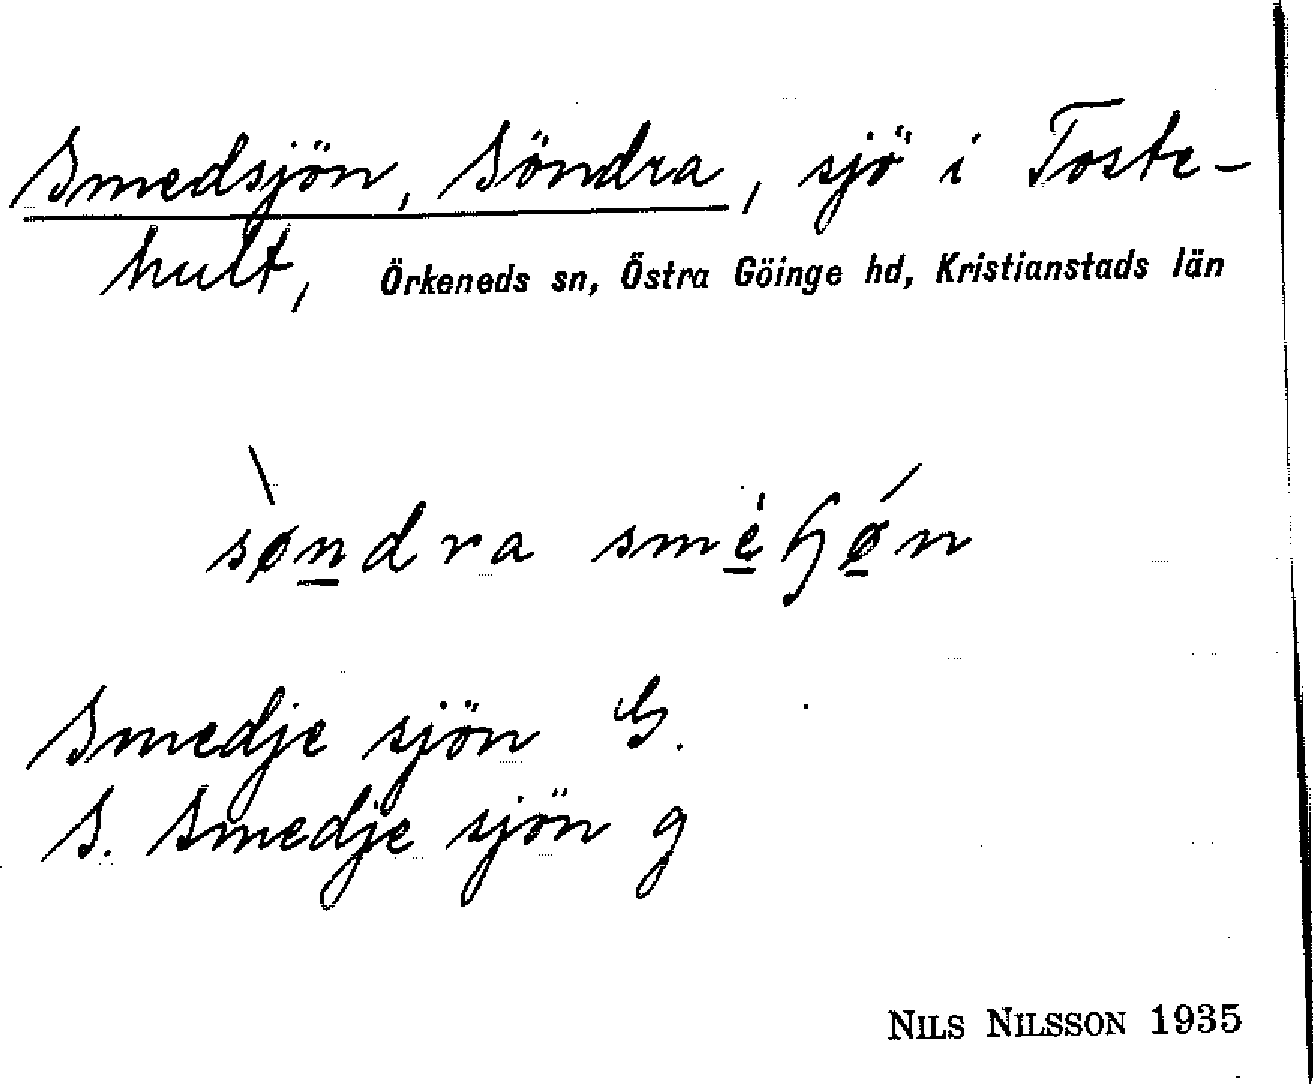 Smedsjön, Söndra, sjö i Toste-
hult, Örkeneds sn, Östra Göinge hd, Kristianstads län
sø̀ndra
Smedje sjön G.
S. Smedje sjön g
NILS NILSSON 1935